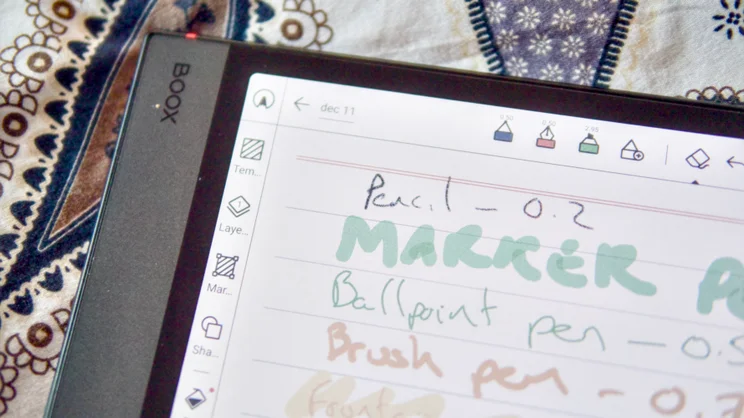 BOOX
dec 11
0.50 0.50 2.95
Tem...
Laye...
Mar...
Sha...
Pencil - 0.2
MARKER
Ballpoint pen - 0.5
Brush pen - 0.